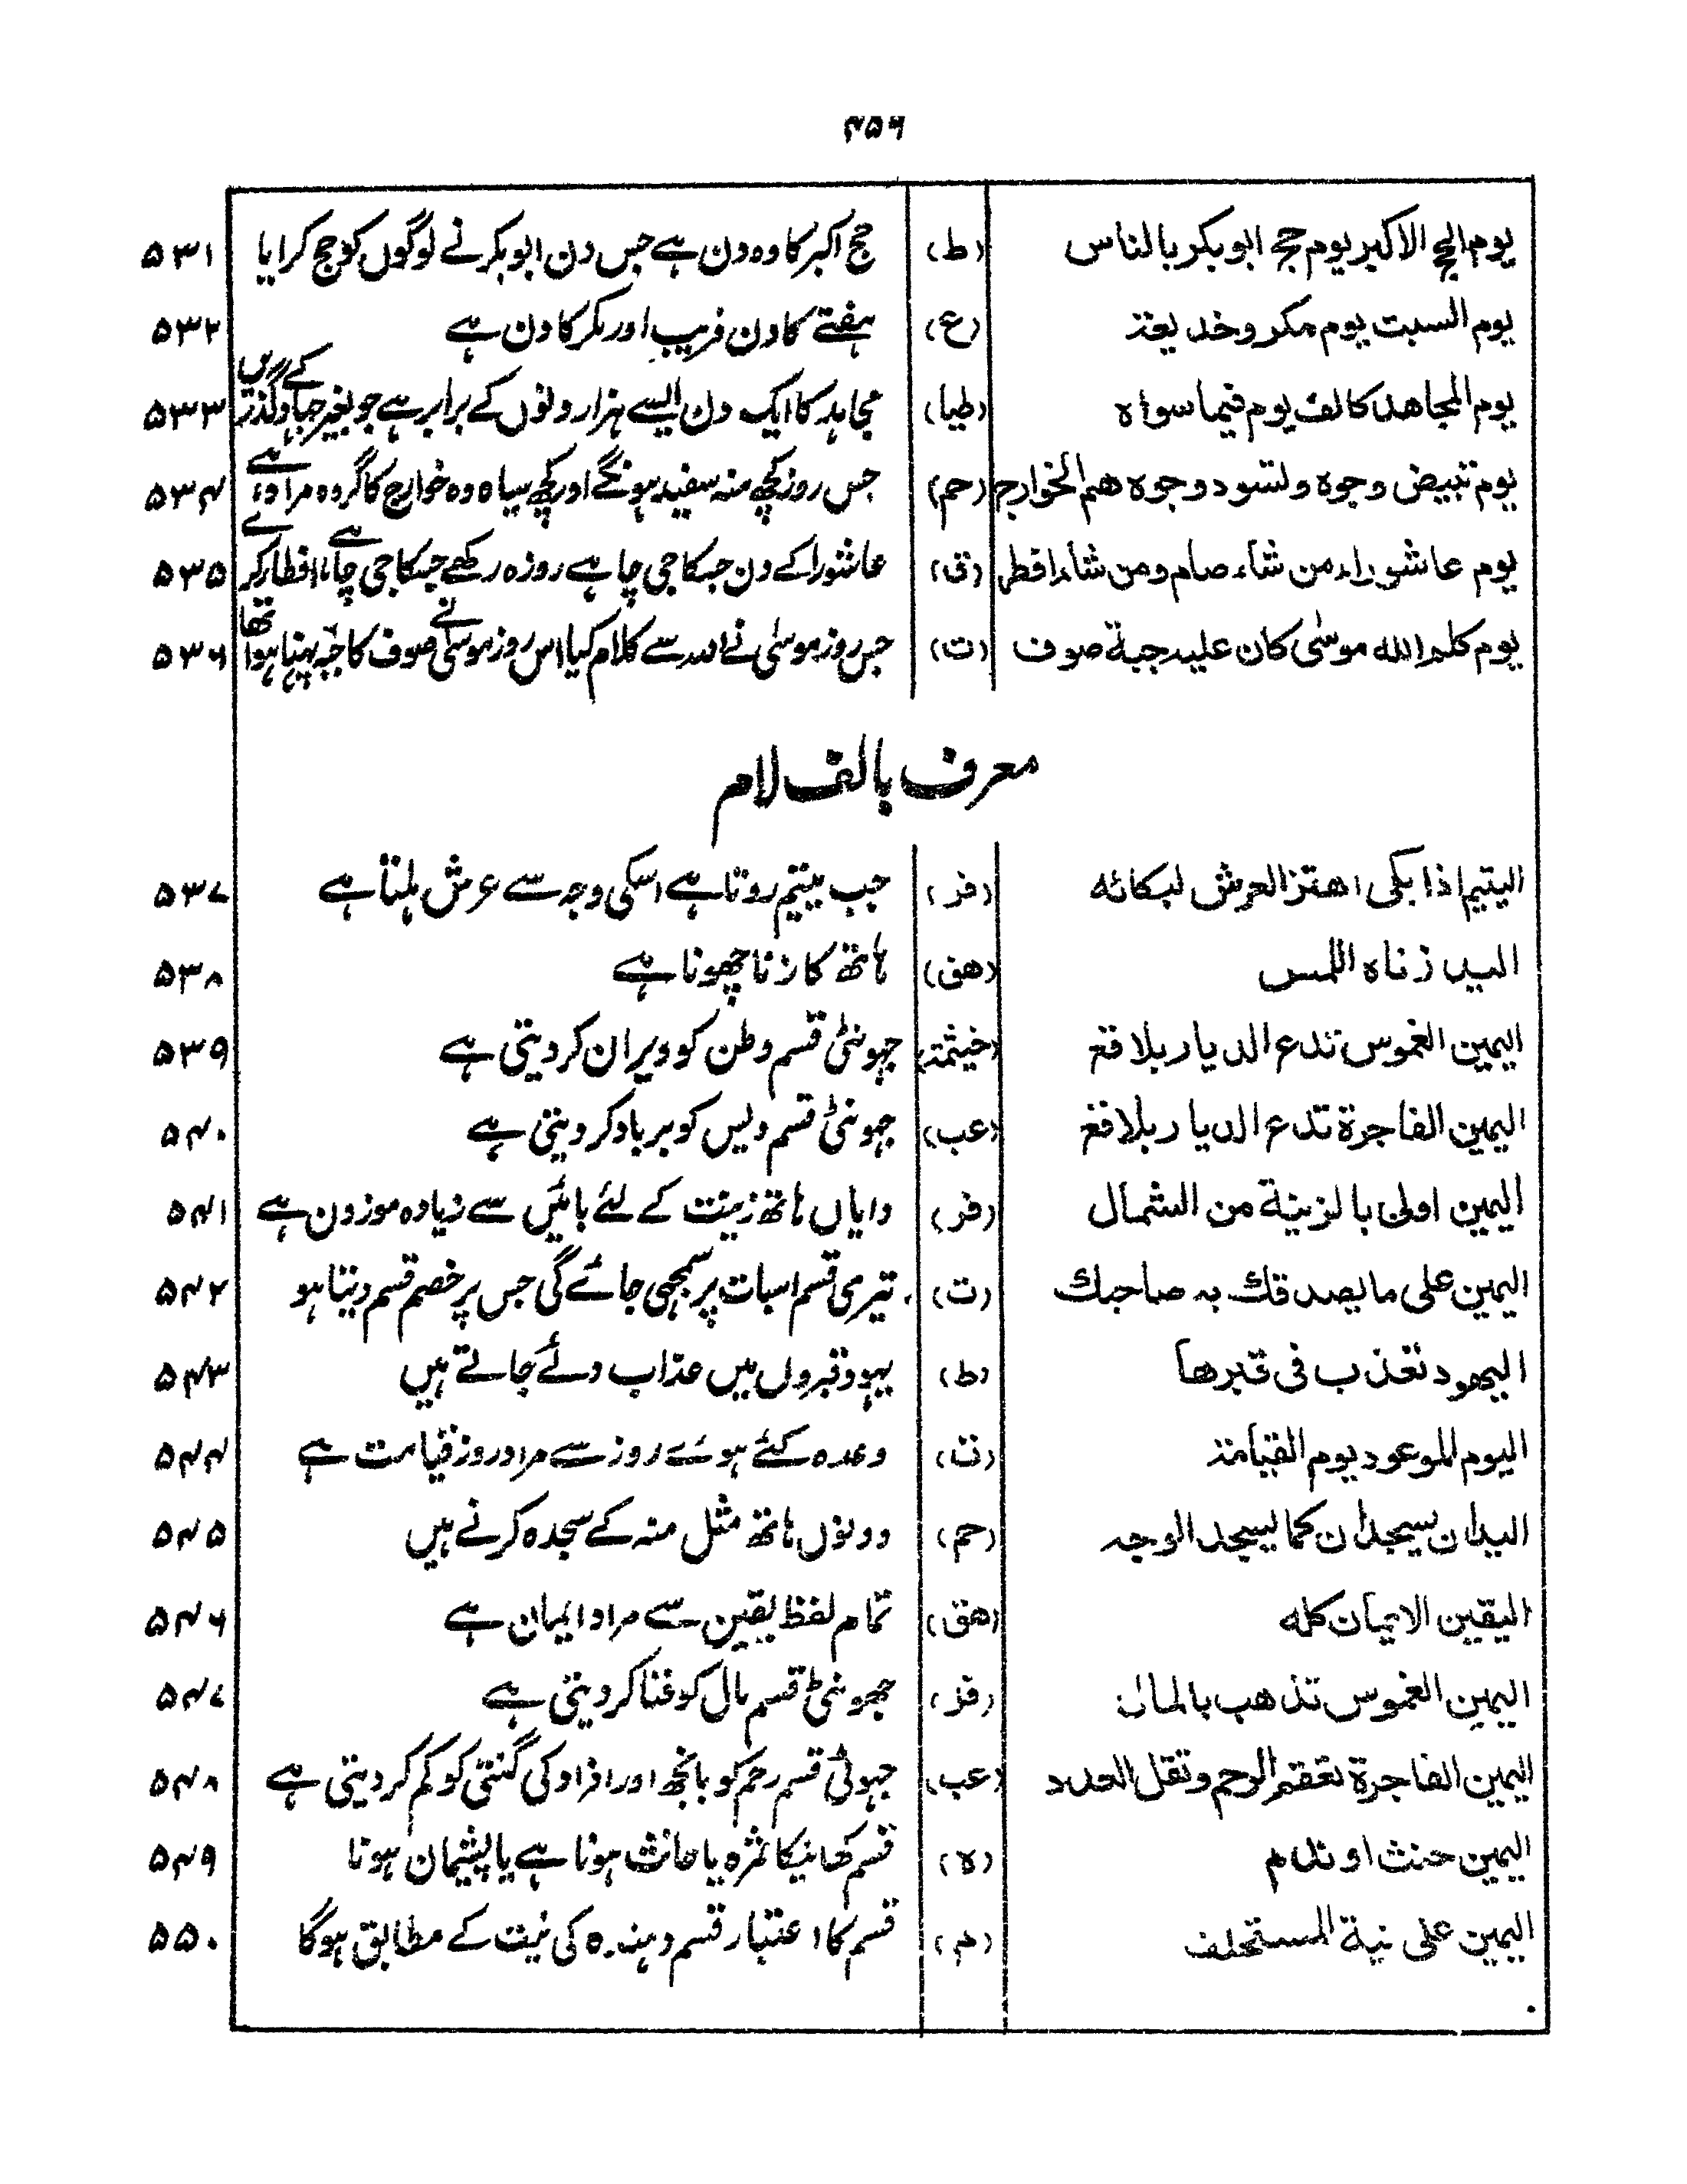 ۴۵۶
یوم الحج الاکبر یوم حج ابو بکر بالناس (ط) حج اکبر کا وہ دن ہے جس دن ابو بکر نے لوگوں کو حج کرایا ۵۳۱
یوم السبت یوم مکر وخدیعة (ع) ہفتے کا دن فریب اور مکر کا دن ہے ۵۳۲
یوم المجاهد کالف یوم فیما سواہ (طیا) مجاہد کا ایک دن ایسے ہزار دنوں کے برابر ہے جو بغیر جہاد کے گذریں ۵۳۳
یوم تبیض وجوہ وتسود وجوہ هم الخوارج (حم) جس روز کچھ منہ سفید ہونگے اور کچھ سیاہ وہ خوارج کا گروہ مراد ہے ۵۳۴
یوم عاشوراء من شاء صام ومن شاء افطر (ق) عاشورا کے دن جسکا جی چاہے روزہ رکھے جسکا جی چاہے افطار کرے ۵۳۵
یوم کلم الله موسٰی کان علیه جبة صوف (ت) جس روز موسٰی نے اللہ سے کلام کیا اس روز موسٰی نے صوف کا جبہ پہنا ہوا تھا ۵۳۶
معرف بالف لام
الیتیم اذا بکی اهتز العرش لبکائه (فر) جب یتیم روتا ہے اسکی وجہ سے عرش ہلتا ہے ۵۳۷
الید زناہ اللمس (هق) ہاتھ کا زنا چھونا ہے ۵۳۸
الیمین الغموس تدع الدیار بلاقع (خیثمة) جہونٹی قسم وطن کو ویران کر دیتی ہے ۵۳۹
الیمین الفاجرة تدع الدیار بلاقع (عب) جہونٹی قسم دیس کو برباد کر دیتی ہے ۵۴۰
الیمین اولی بالزینة من الشمال (فر) دایاں ہاتھ زینت کے لئے بائیں سے زیادہ موزون ہے ۵۴۱
الیمین علی ما یصدقك به صاحبك (ت) تیری قسم اسبات پر سمجھی جائے گی جس پر خصم قسم دیتا ہو ۵۴۲
الیهود تعذب فی قبرها (ط) یہود قبروں میں عذاب دئے جاتے ہیں ۵۴۳
الیوم الموعود یوم القیامة (ت) وعدہ کئے ہوئے روز سے مراد روز قیامت ہے ۵۴۴
الیدان یسجدان کما یسجد الوجه (حم) دونوں ہاتھ مثل منہ کے سجدہ کرتے ہیں ۵۴۵
الیقین الایمان کله (هق) تمام لفظ یقین سے مراد ایمان ہے ۵۴۶
الیمین الغموس تذهب بالمال (فر) جھونٹی قسم مال کو فنا کر دیتی ہے ۵۴۷
الیمین الفاجرة تعقم الرحم وتقل العدد (عب) جہوٹی قسم رحم کو بانجھ اور افراد کی گنتی کو کم کر دیتی ہے ۵۴۸
الیمین حنث او ندم (ہ) قسم کھانیکا ثمرہ یا حانث ہونا ہے یا پشیمان ہونا ۵۴۹
الیمین علی نیة المستحلف (م) قسم کا اعتبار قسم دہندہ کی نیت کے مطابق ہوگا ۵۵۰